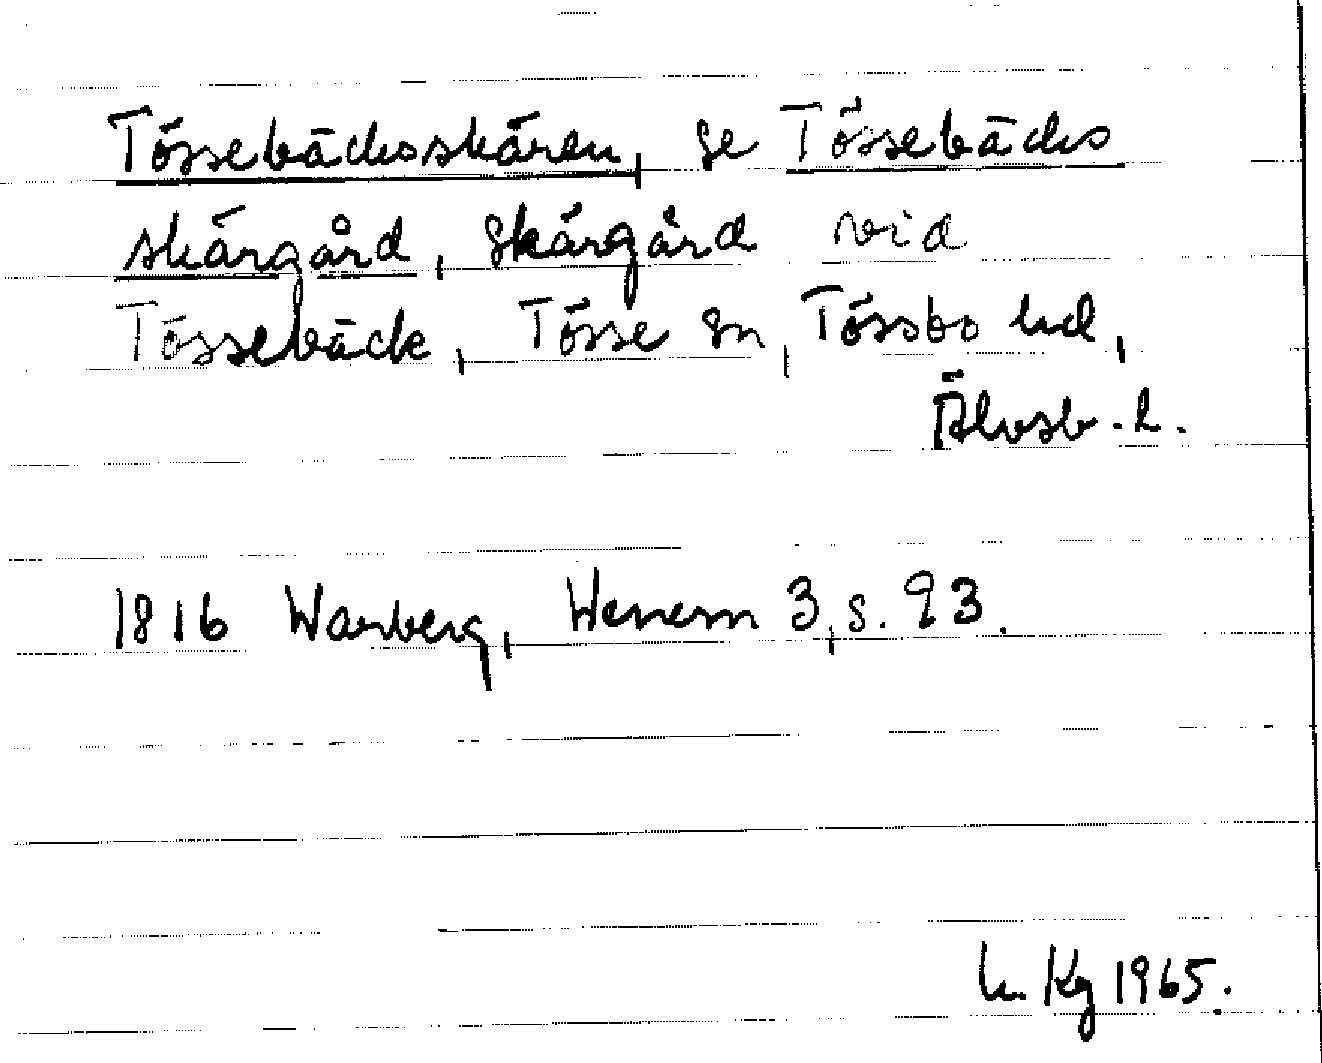 Tössebäcksskären, se Tössebäcks
skärgård, skärgård vid
Tössebäck, Tösse sn, Tössbo hd,
Älvsb. l.
1816 Warberg, Wenern 3, s. 93.
Kg 1965.